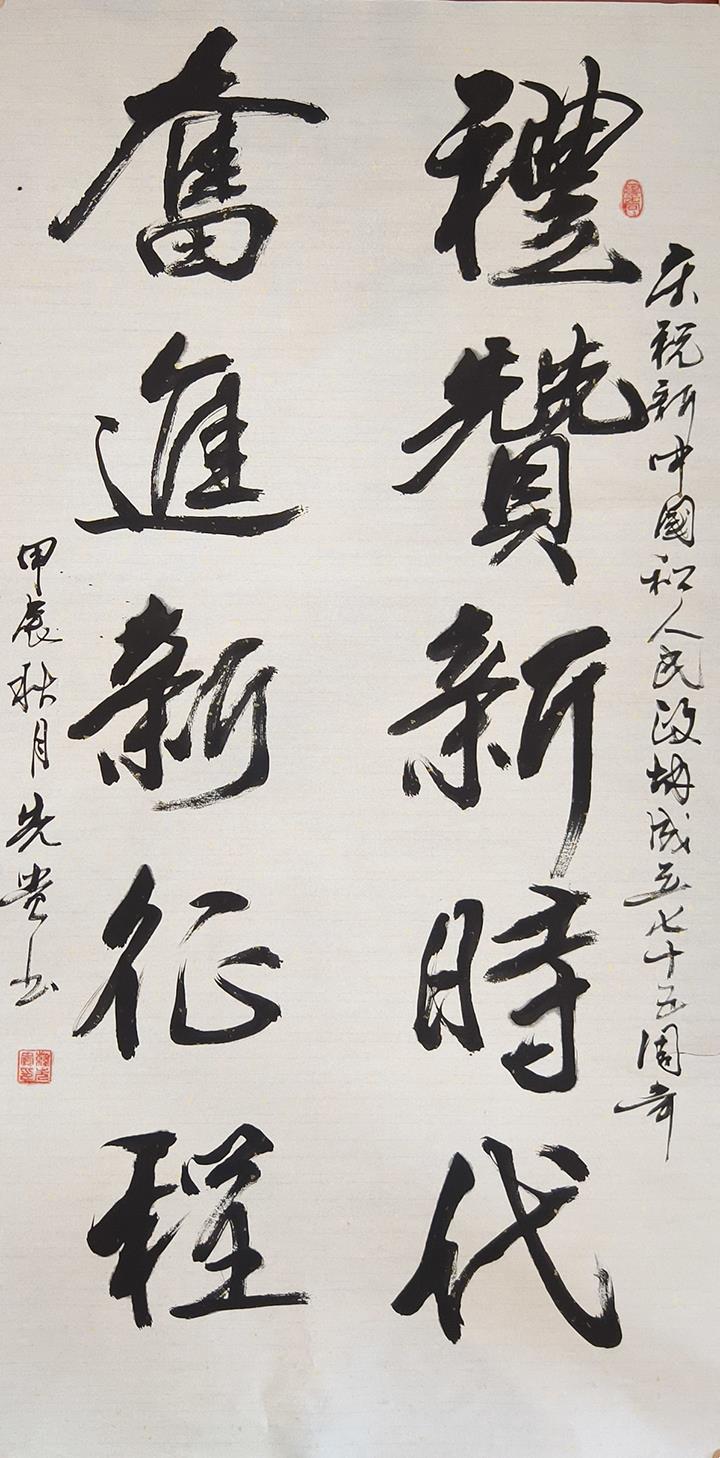 庆祝新中國和人民政协成立七十五周年
禮贊新時代
奮進新征程
甲辰秋月先贵书